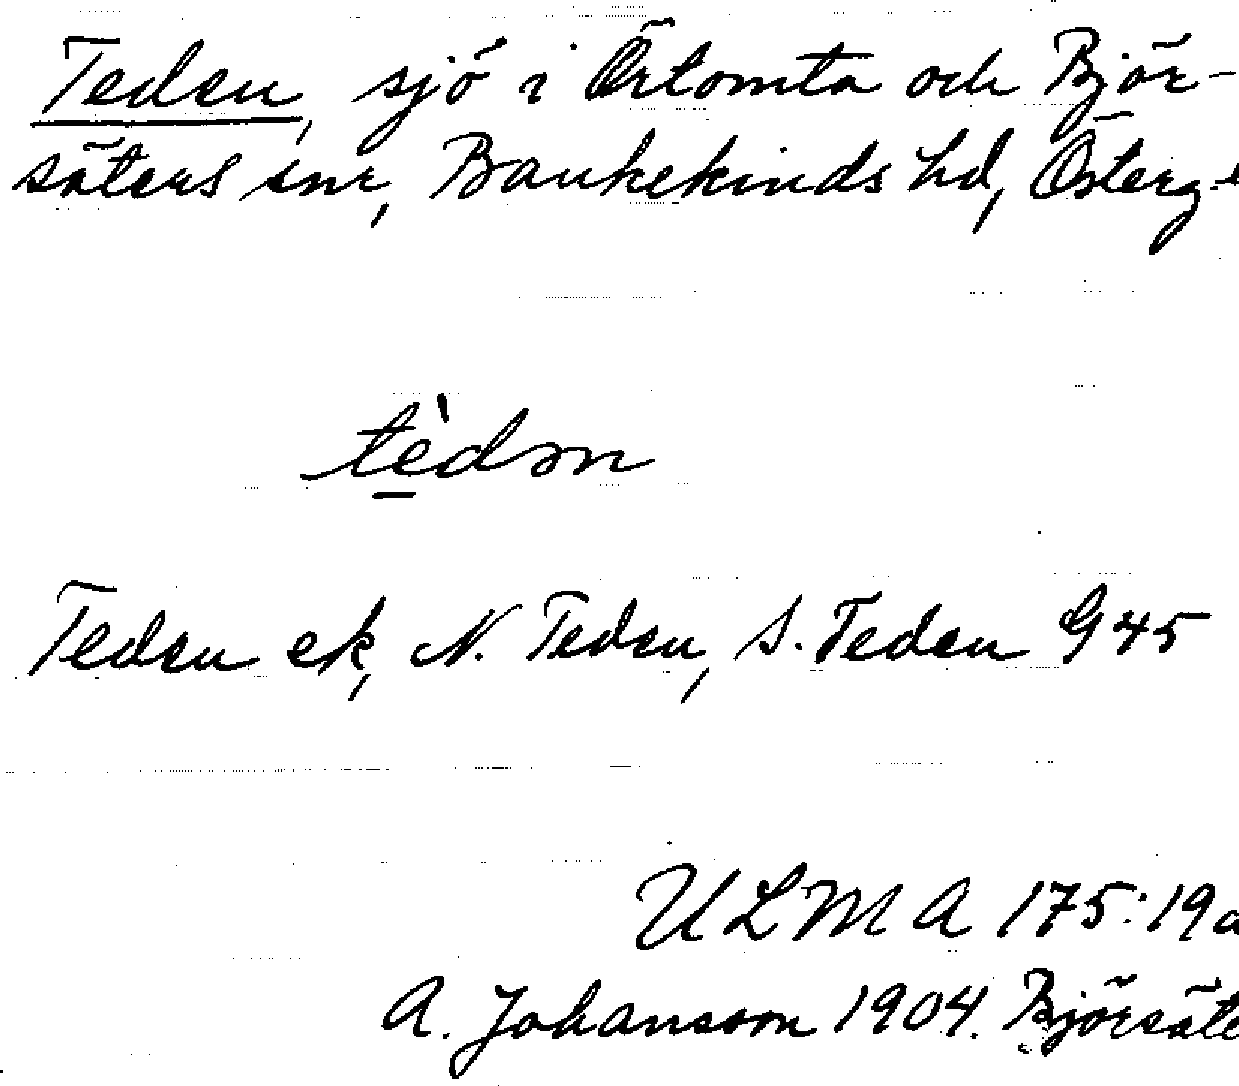 Teden, sjö i Örtomta och Björ-
säters snr, Bankekinds hd, Österg.
tèdən
Teden ek, N. Teden, S. Teden G 45
ULMA 175:19a
A. Johansson 1904. Björsäte